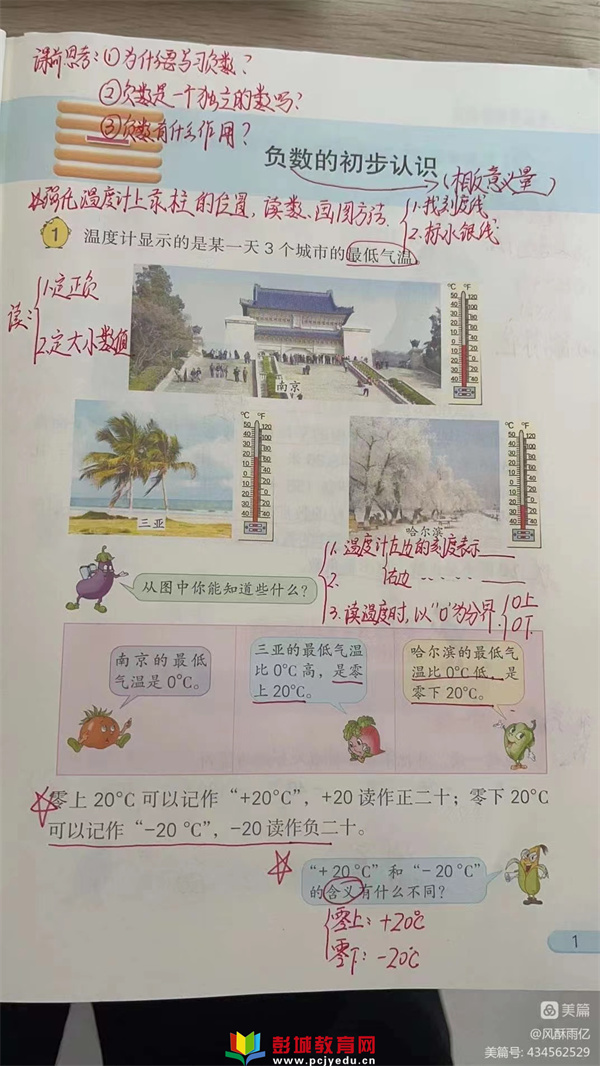 课前思考：①为什么要学习负数？
②负数是一个独立的数吗？
③负数有什么作用？
负数的初步认识
（相反意义量）
强化温度计上汞柱的位置，读数、画图方法
1.找刻度线
2.标水银线
1 温度计显示的是某一天 3 个城市的最低气温。
读：
1.定正负
2.定大小数值
°C °F
南京
°C °F
三亚
°C °F
哈尔滨
从图中你能知道些什么？
1.温度计左边的刻度表示
2. 右边
3.读温度时，以“0”为分界
0上
0下
南京的最低
气温是 0°C。
三亚的最低气温
比 0°C 高，是零
上 20°C。
哈尔滨的最低气
温比 0°C 低，是
零下 20°C。
零上 20°C 可以记作“+20°C”，+20 读作正二十；零下 20°C
可以记作“−20 °C”，−20 读作负二十。
“+ 20 °C”和“− 20 °C”
的含义有什么不同？
零上：+20℃
零下：-20℃
1
美篇
@风酥雨亿
美篇号: 434562529
彭城教育网
www.pcjyedu.cn